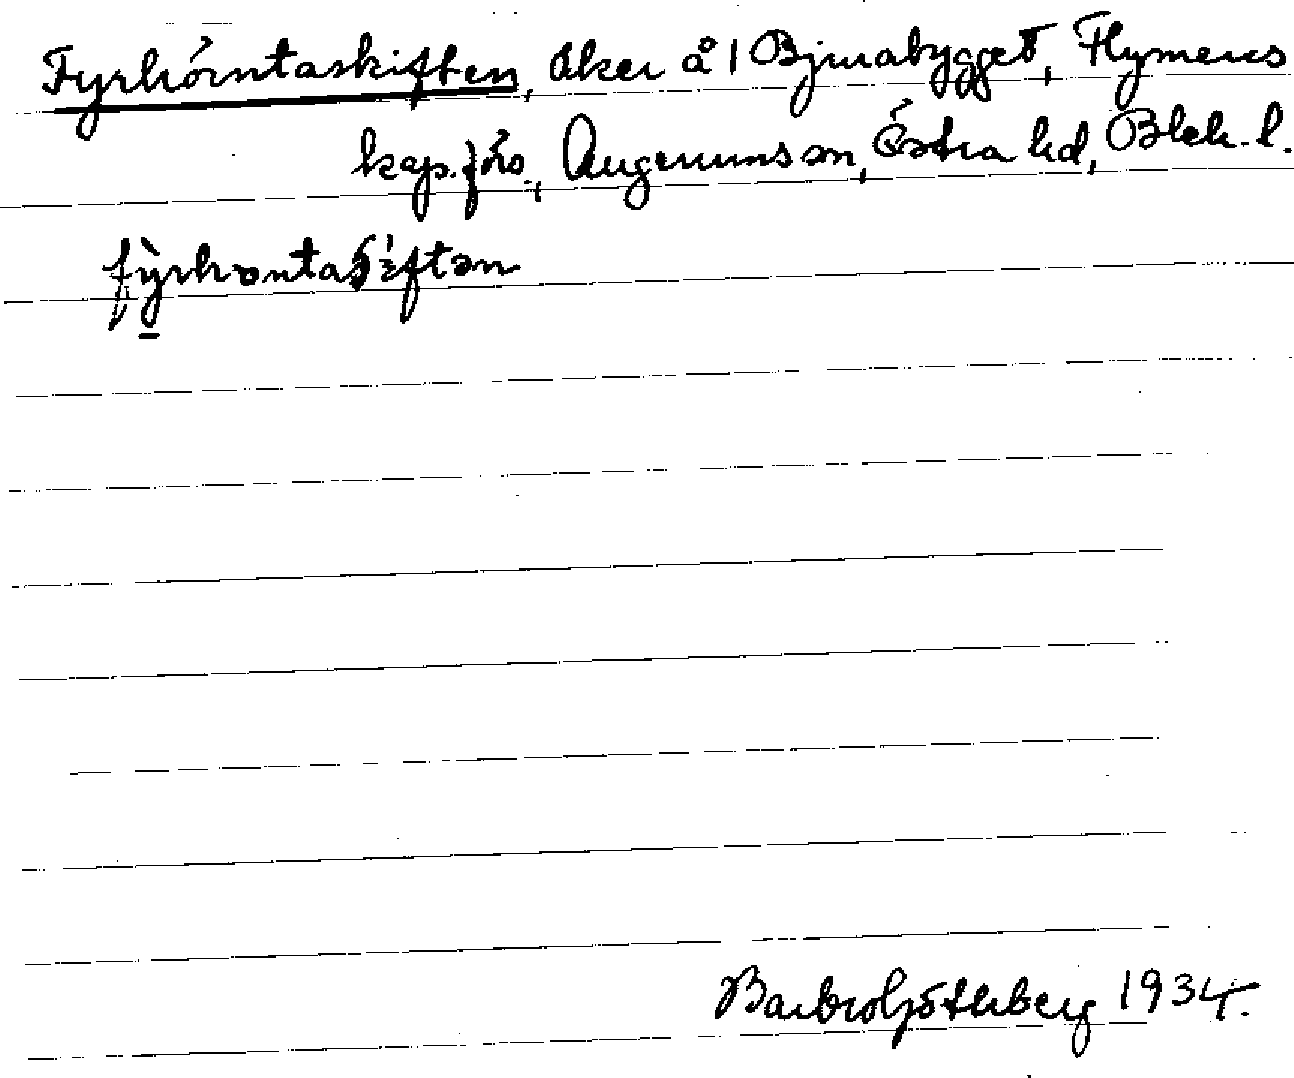 Fyrhörntaskiften, åker å 1 Bjurabygget, Flymens
kap. förs., Augerums sn, Östra hd, Blek. l.
fỳrhɷntaʃìftən
Barbro Götherberg 1934.